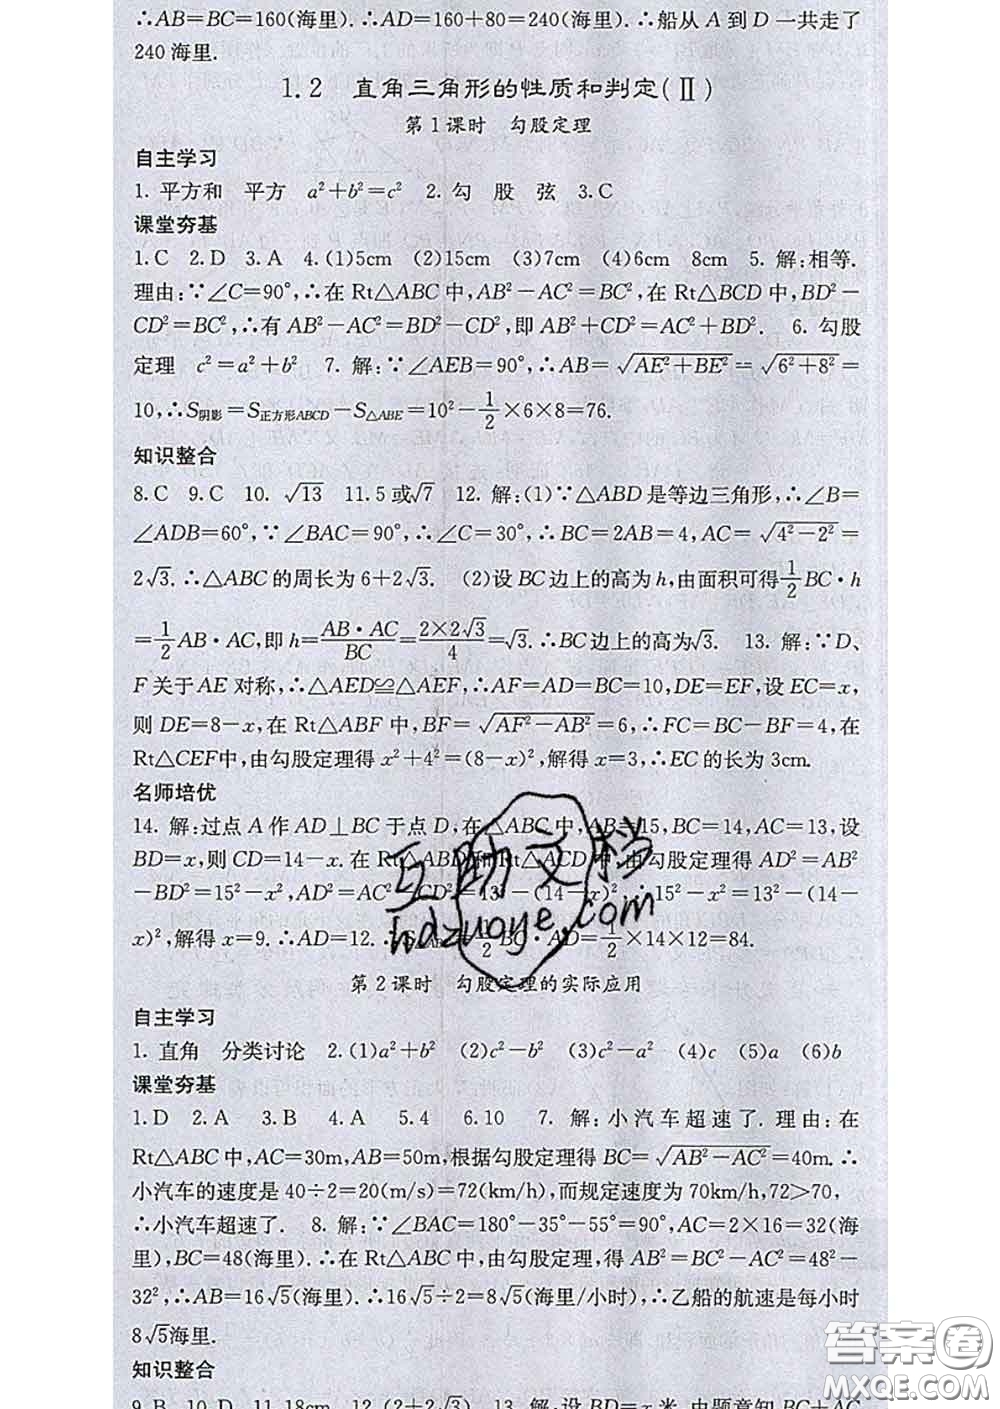 ∴AB=BC=160(海里).∴AD=160+80=240(海里).∴船从 A 到 D 一共走了
240 海里.
1.2 直角三角形的性质和判定(Ⅱ)
第1课时 勾股定理
自主学习
1. 平方和 平方 a²+b²=c² 2. 勾 股 弦 3.C
课堂夯基
1.C 2.D 3.A 4.(1)5cm (2)15cm (3)7cm (4)6cm 8cm 5. 解:相等.
理由:∵∠C=90°,∴在 Rt△ABC 中,AB²-AC²=BC²,在 Rt△BCD 中,BD²-
CD²=BC²,∴有 AB²-AC²=BD²-CD²,即 AB²+CD²=AC²+BD². 6. 勾股
定理 c²=a²+b² 7. 解:∵∠AEB=90°,∴AB=√(AE²+BE²)=√(6²+8²)=
10,∴S阴影=S正方形ABCD-S△ABE=10²-1/2×6×8=76.
知识整合
8.C 9.C 10. √13 11.5或√7 12. 解:(1)∵△ABD是等边三角形,∴∠B=
∠ADB=60°,∵∠BAC=90°,∴∠C=30°,∴BC=2AB=4,AC=√(4²-2²)=
2√3.∴△ABC的周长为6+2√3. (2)设BC边上的高为h,由面积可得1/2BC·h
=1/2AB·AC,即h=AB·AC/BC=2×2√3/4=√3.∴BC边上的高为√3. 13. 解:∵D、
F关于AE 对称,∴△AED≌△AEF,∴AF=AD=BC=10,DE=EF,设EC=x,
则 DE=8-x,在 Rt△ABF 中,BF=√(AF²-AB²)=6,∴FC=BC-BF=4,在
Rt△CEF中,由勾股定理得 x²+4²=(8-x)²,解得 x=3,∴EC的长为3cm.
名师培优
14. 解:过点 A 作 AD⊥BC 于点 D,在△ABC 中,AB=15,BC=14,AC=13,设
BD=x,则 CD=14-x.在 Rt△ABD和Rt△ACD 中,由勾股定理得 AD²=AB²
-BD²=15²-x²,AD²=AC²-CD²=13²-(14-x)²,∴15²-x²=13²-(14-
x)²,解得 x=9.∴AD=12.∴S△ABC=1/2BC·AD=1/2×14×12=84.
互助文档
hdzuoye.com
第2课时 勾股定理的实际应用
自主学习
1. 直角 分类讨论 2.(1)a²+b² (2)c²-b² (3)c²-a² (4)c (5)a (6)b
课堂夯基
1.D 2.A 3.B 4.A 5.4 6.10 7. 解:小汽车超速了. 理由:在
Rt△ABC中,AC=30m,AB=50m,根据勾股定理得 BC=√(AB²-AC²)=40m.∴
小汽车的速度是 40÷2=20(m/s)=72(km/h),而规定速度为70km/h,72>70,
∴小汽车超速了. 8. 解:∵∠BAC=180°-35°-55°=90°,AC=2×16=32(海
里),BC=48(海里).∴在 Rt△ABC 中,由勾股定理,得 AB²=BC²-AC²=48²-
32²,∴AB=16√5(海里).∴16√5÷2=8√5(海里/小时),∴乙船的航速是每小时
8√5海里.
知识整合
9.B 10.D 11.18cm 12.(2+2√3) 13. 解:设 BD=x 米,由题意知 BC+AC
答案圈
MXQE.COM